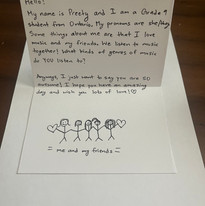 Hello!
My name is Preety and I am a Grade 9
student from Ontario. My pronouns are she/they.
Some things about me are that I love
music and my friends. We listen to music
together! What kinds of genres of music
do YOU listen to?
Anyways, I just want to say you are SO
awesome! I hope you have an amazing
day and wish you lots of love!
= me and my friends =